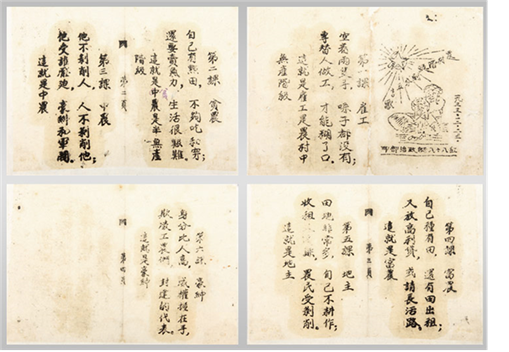 第一課 雇工
空着兩隻手，
都沒有；
專替人做工，才能糊了口。
這就是雇工是農村中
無產階級
第二課 貧農
自己有點田，不夠吃和穿；
還要賣點力，生活很艱難。
這就是貧農是半無產
階級
第二頁
第三課 中農
他不剝削人，人不剝削他；
他受誰壓迫，豪紳和軍閥。
這就是中農
第四課 富農
自己種有田，還有田出租；
又放高利貸，或請長活路，
這就是富農
第三頁
第五課 地主
田地非常多，自己不耕作；
收租，農民受剝削。
這就是地主
第六課 豪紳
身分比人高，威權握在手，
欺凌工農們，封建的代表。
這就是豪紳
第四頁